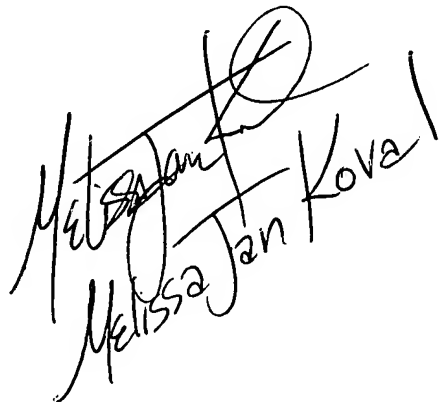 Melissa Jan K
Melissa Jan Koval